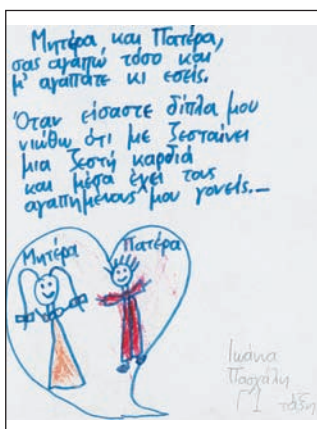 Μητέρα και Πατέρα,
σας αγαπώ τόσο και
μ' αγαπάτε κι εσείς.
Όταν είσαστε δίπλα μου
νιώθω ότι με ζεσταίνει
μια ζεστή καρδιά
και μέσα έχει τους
αγαπημένους μου γονείς.—
Μητέρα Πατέρα
Ιωάννα
Πασχάλη
Γ1 τάξη